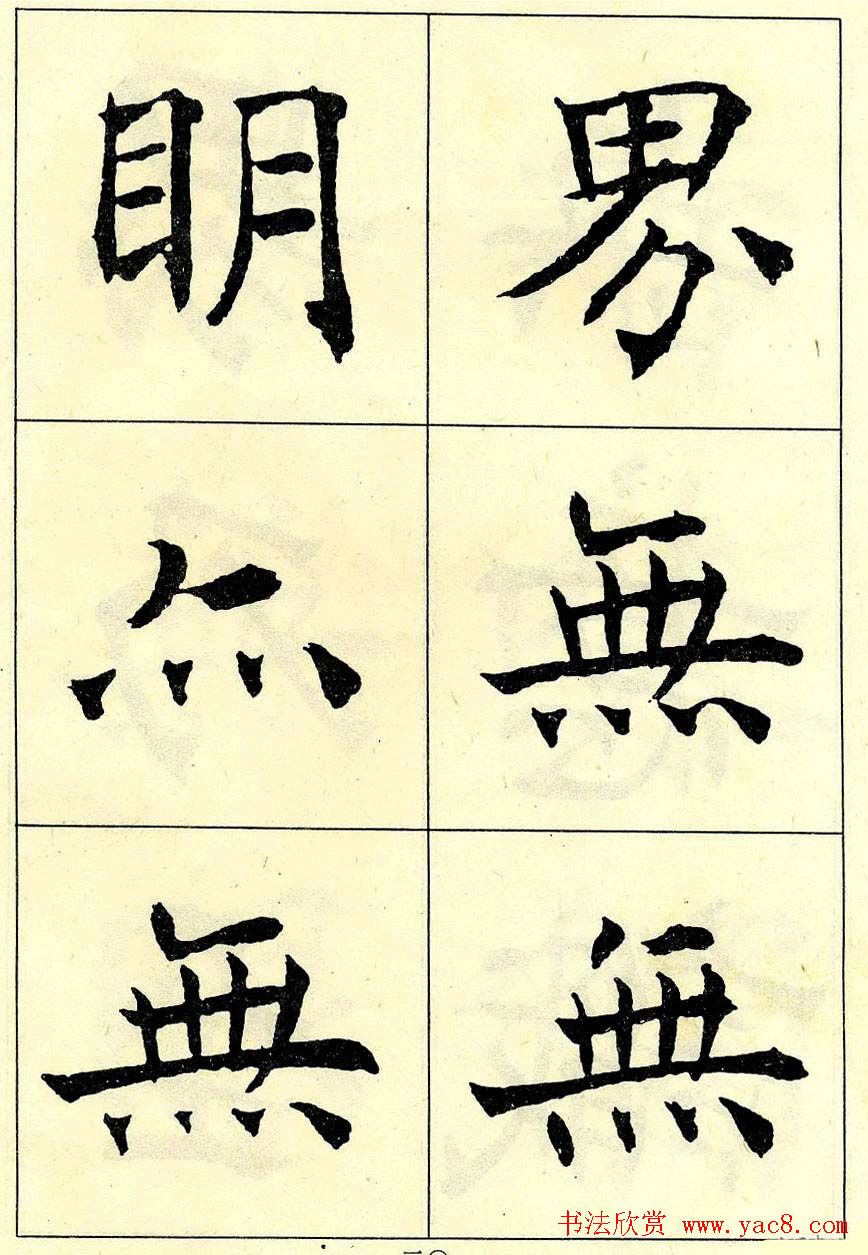 界無無
明亦無
书法欣赏 www.yac8.com